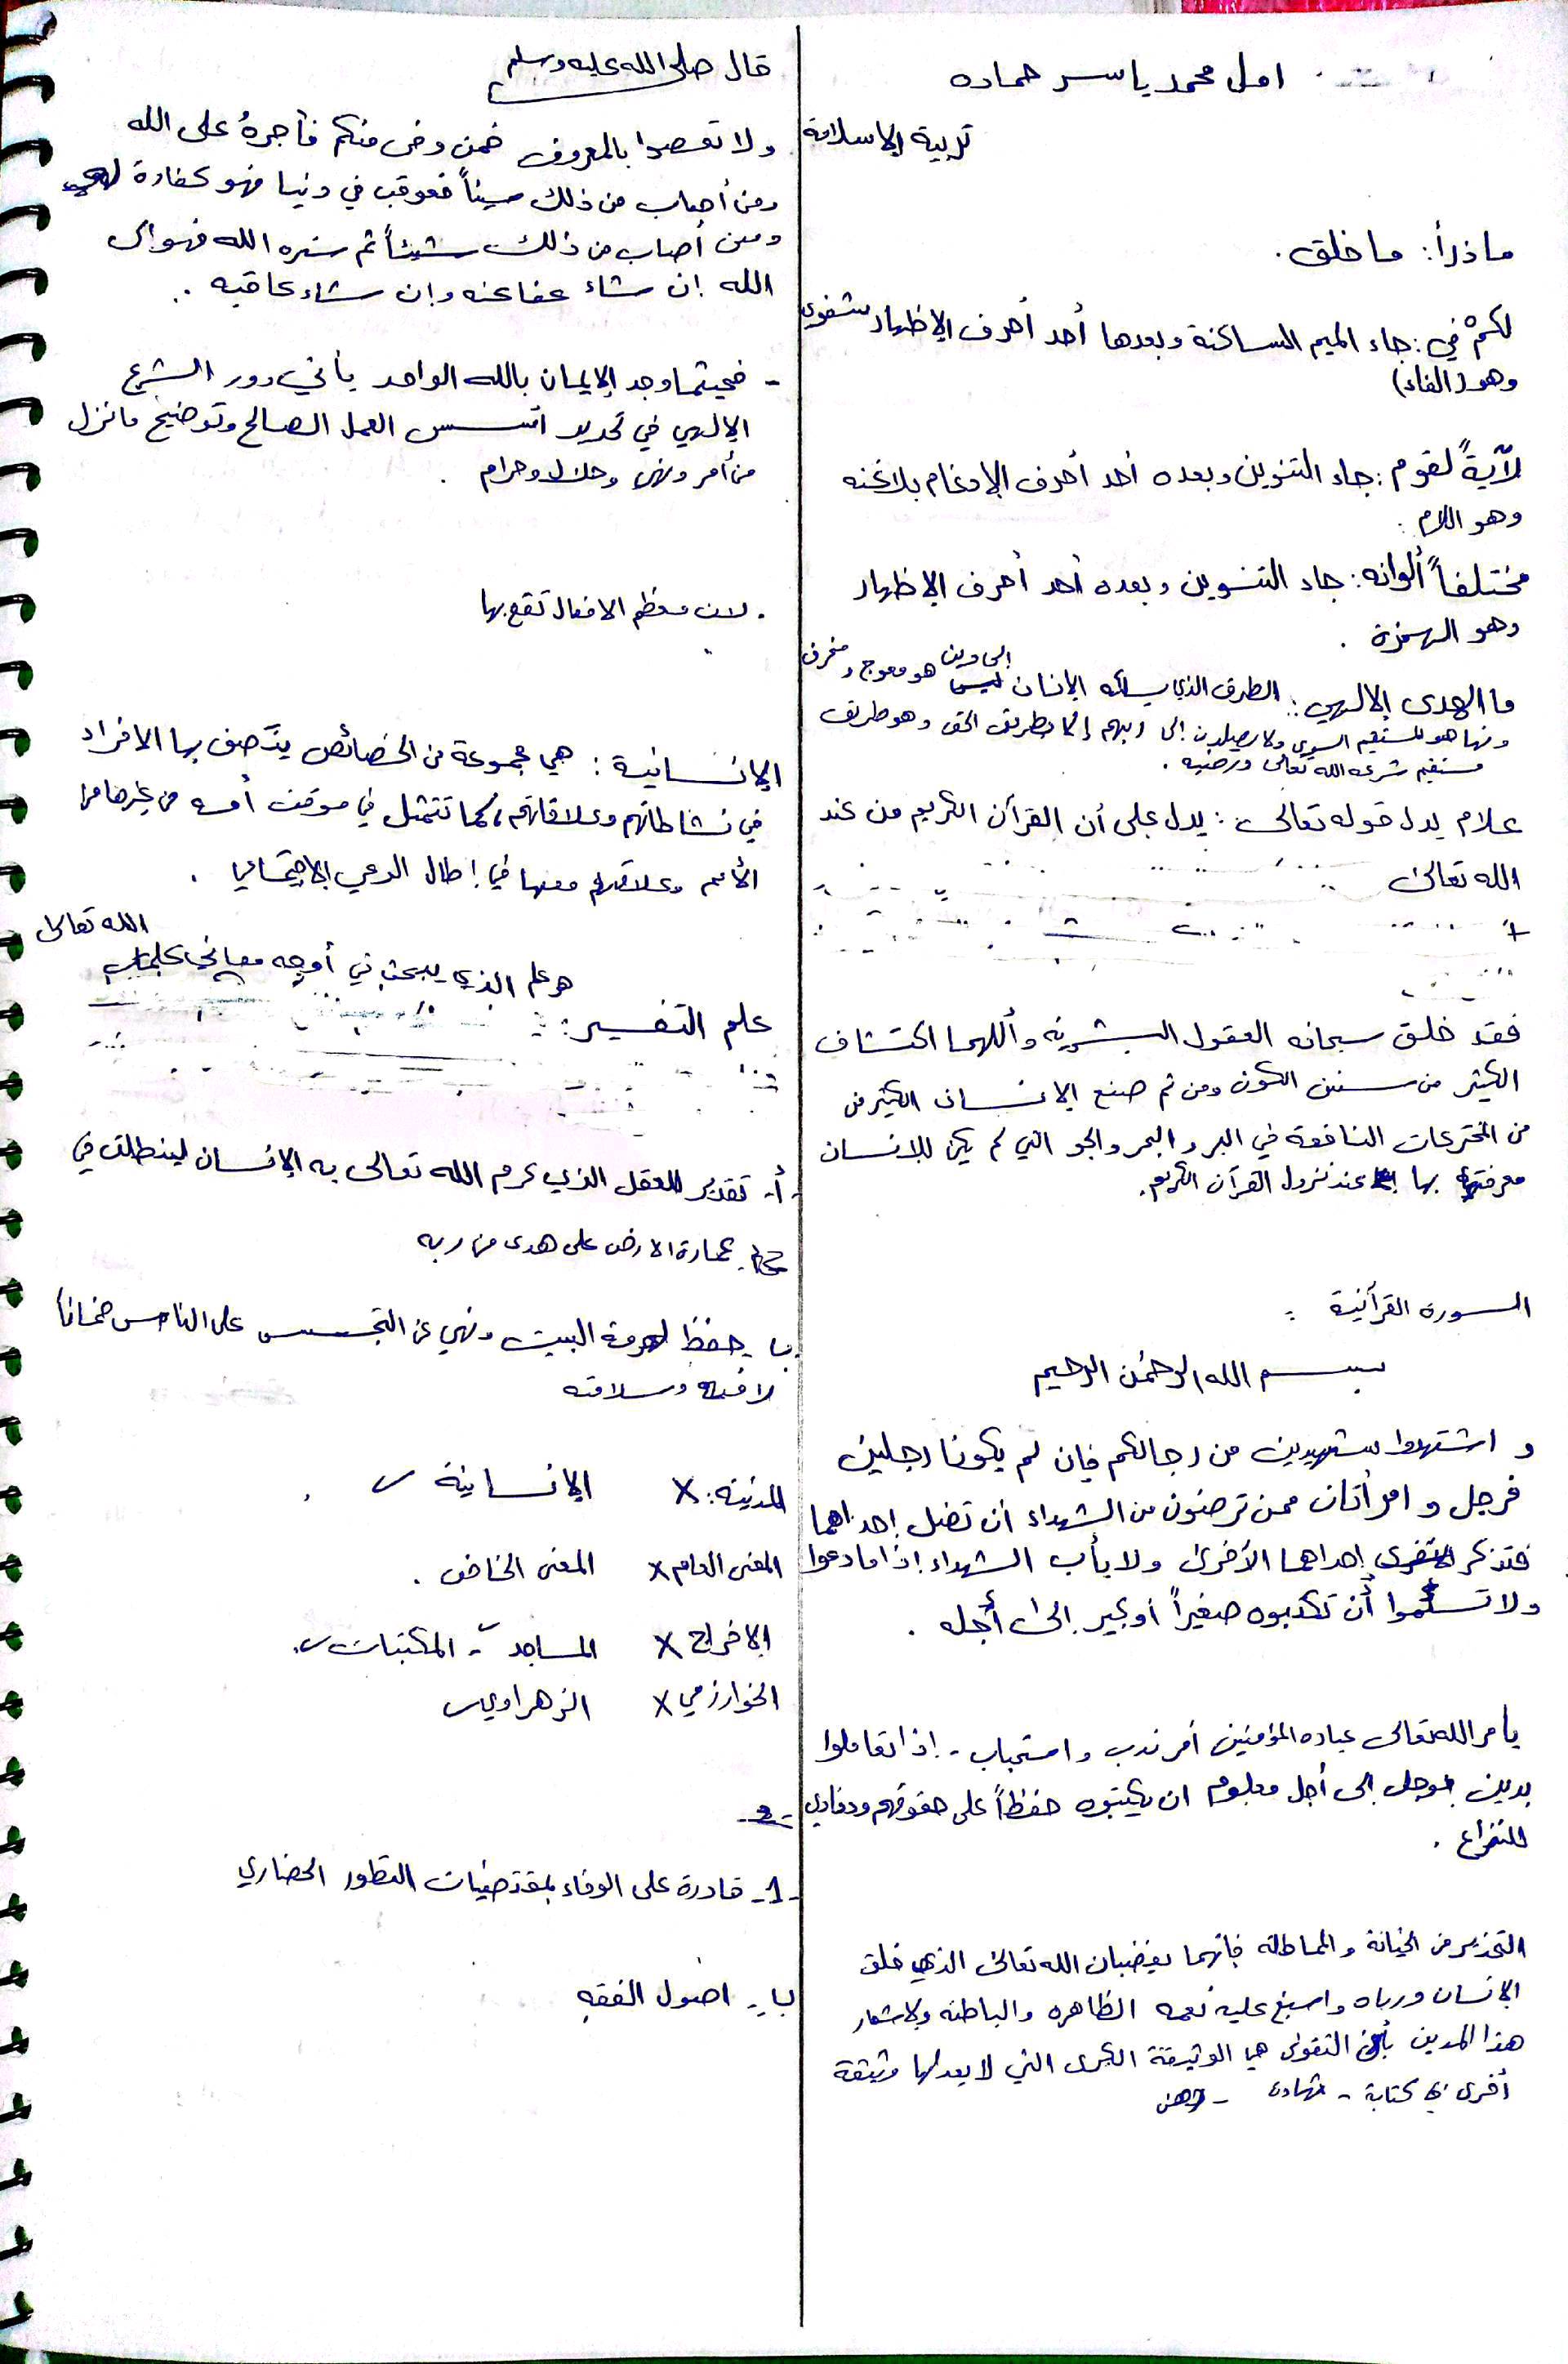 امل محمد ياسر حماده
تربية الاسلامة
ماذرأ: ما خلق.
لكمْ في: جاء الميم الساكنة وبعدها أحد أحرف الإظهار شفوي
وهو (الفاء)
لآيةً لقوم: جاء التنوين وبعده أحد أحرف الإدغام بلاغنه
وهو اللام.
مختلفاً ألوانه: جاء التنوين وبعده أحد أحرف الإظهار
وهو الهمزة.
ما الهدى الإلهي: الطرق الذي يسلكه الإنسان إلى دين هو معوج ومنحرف
ومنها هو المستقيم السوي ولا يصلون إلى ربهم إلا بطريق الحق وهو طريق
مستقيم شرعه الله تعالى ورضيه.
علام يدل قوله تعالى: يدل على أن القرآن الكريم من عند
الله تعالى
فقد خلق سبحانه العقول البشرية وألهمها اكتشاف
الكثير من سنن الكون ومن ثم صنع الإنسان الكثير من
من المخترعات النافعة في البر والبحر والجو التي لم يكن للإنسان
معرفة بها عند نزول القرآن الكريم.
السورة القرآنية:
بسم الله الرحمٰن الرحيم
و اشتهدوا شهيدين من رجالكم فإن لم يكونا رجلين
فرجل و امرأتان ممن ترضون من الشهداء أن تضل إحداهما
فتذكر إحداهما الأخرى ولا يأب الشهداء إذا ما دعوا
ولا تسئموا أن تكتبوه صغيراً أو كبير إلى أجله.
يأمر الله تعالى عباده المؤمنين أمر ندب واستحباب - إذا تعاملوا
بدين مؤجل إلى أجل معلوم ان يكتبوه حفظاً على حقوقهم وتفادي
للنزاع.
التحذير من الخيانة والمماطلة فإنهما يغضبان الله تعالى الذي خلق
الإنسان ورباه واسبغ عليه نعمه الظاهره والباطنه ولاشعار
هذا المدين بأن التقوى هي الوثيقة الكبرى التي لا يعدلها وثيقة
أخرى في كتابة - شهادة - رهن
قال صلى الله عليه وسلم
ولا تعصوا بالمعروف فمن وفى منكم فأجرهُ على الله
ومن أصاب من ذلك شيئاً فعوقب في دنيا فهو كفارة له
ومن أصاب من ذلك شيئاً ثم ستره الله فهو إلى
الله إن شاء عفا عنه وإن شاء عاقبه.
- فحيثما وجد الإيمان بالله الواحد يأتي دور الشرع
الإلهي في تحديد أسس العمل الصالح وتوضيح ما نزل
من أمر ونهي وحلال وحرام.
. لان معظم الافعال تقع بها
الإنسانية: هي مجموعة من الخصائص يتصف بها الافراد
في نشاطاتهم وعلاقاتهم، كما تتمثل في موقف أمة من غيرها من
الأمم وعلاقتهم معها في إطار الوعي الاجتماعي.
علم التفسير: هو علم الذي يبحث في أوجه معاني كلمات الله تعالى
أ- تقدير للعقل الذي كرم الله تعالى به الإنسان لينطلق في
عمارة الارض على هدى من ربه
ب- حفظ لحرمة البيت ونهي عن التجسس على الناس ضماناً
لامنه وسلامته
المدينة: X الإنسانية ✓
المعنى العام X المعنى الخاص.
الإخراج X المساجد - المكتبات ✓
الخوارزمي X الزهراوي ✓
-2-
-1- قادرة على الوفاء بمقتضيات التطور الحضاري
ب- اصول الفقه